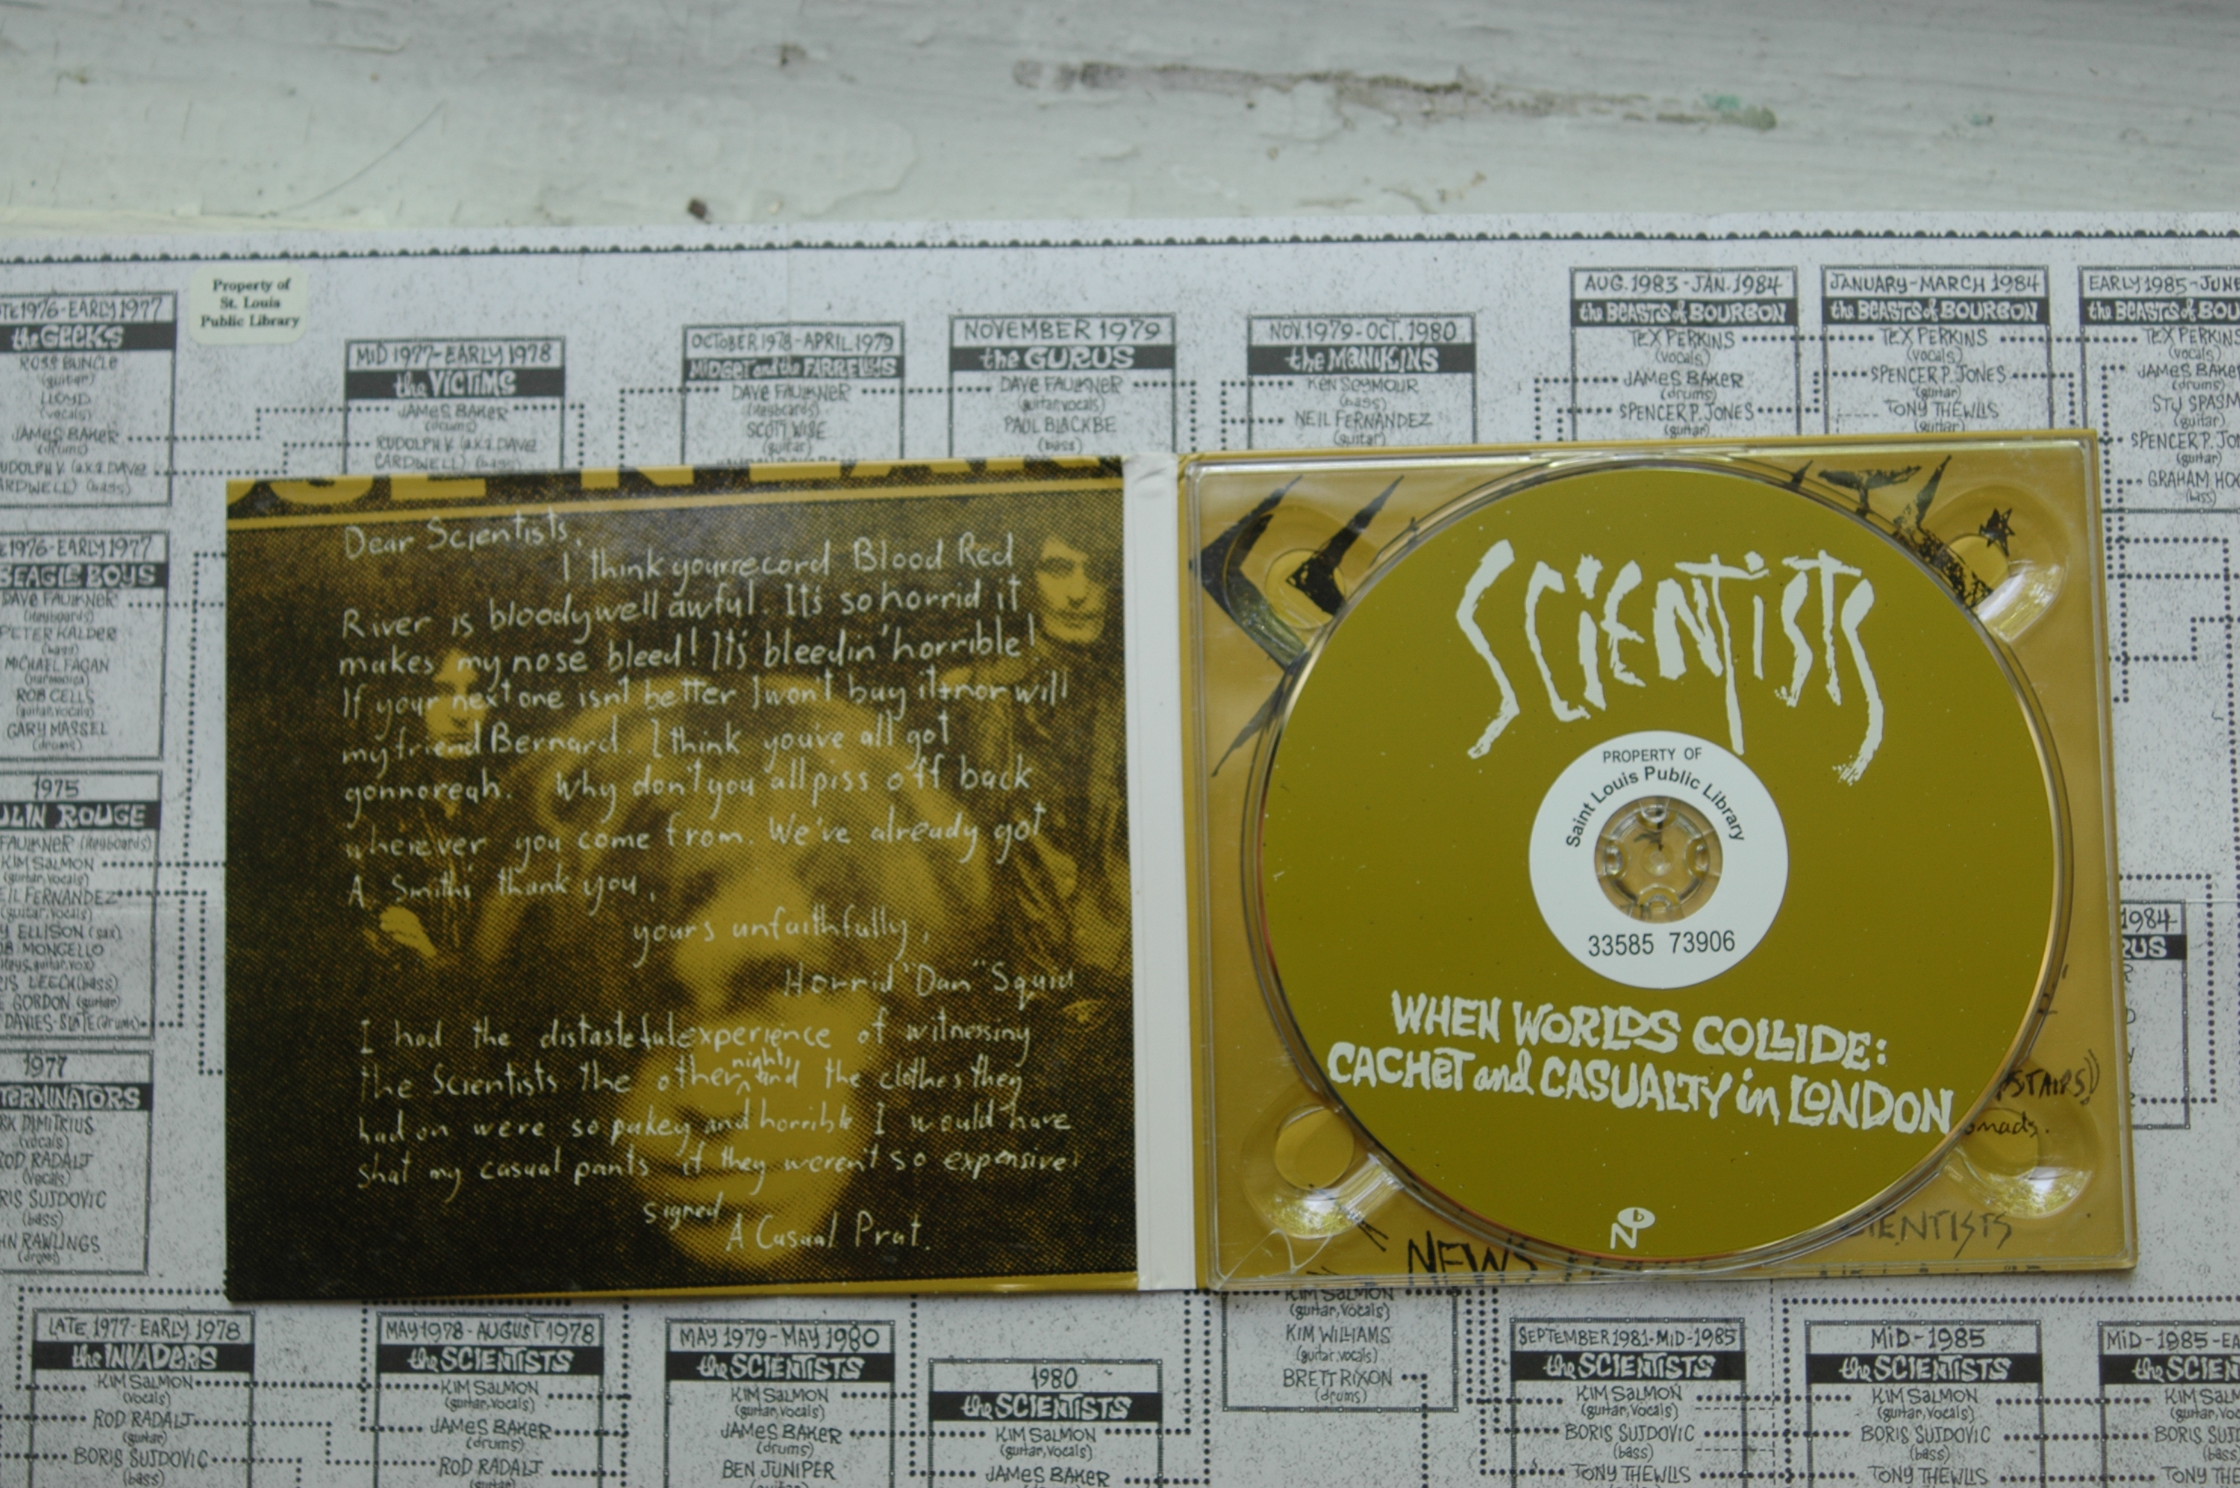 Property of
St. Louis
Public Library
1976-EARLY 1977
the GEEKS
ROSS BUNCLE
(guitar)
LLOYD
(vocals)
JAMES BAKER
(drums)
CARDWELL) (bass)
MID 1977-EARLY 1978
the VICTIMS
JAMES BAKER
(drums)
RUDOLPH V (a.k.a. DAVE
CARDWELL) (bass)
OCTOBER 1978-APRIL 1979
MIDGET and the FARRELLYS
DAVE FAULKNER
(keyboards)
SCOTT WISE
(guitar)
NOVEMBER 1979
the GURUS
DAVE FAULKNER
(guitar, vocals)
PAUL BLACKBE
(bass)
NOV. 1979-OCT. 1980
the MANIKINS
KEN SEYMOUR
(bass)
NEIL FERNANDEZ
(guitar)
AUG. 1983-JAN. 1984
the BEASTS of BOURBON
TEX PERKINS
(vocals)
JAMES BAKER
(drums)
SPENCER P. JONES
(guitar)
JANUARY-MARCH 1984
the BEASTS of BOURBON
TEX PERKINS
(vocals)
SPENCER P. JONES
(guitar)
TONY THEWLIS
(guitar)
EARLY 1985-JUNE
the BEASTS of BOU
TEX PERKINS
(vocals)
JAMES BAKER
(drums)
STU SPASM
(guitar)
SPENCER P. JO
(guitar)
GRAHAM HO
(bass)
1976-EARLY 1977
BEAGLE BOYS
DAVE FAULKNER
(keyboards)
PETER KALDER
(bass)
MICHAEL FAGAN
(harmonica)
ROB CELLS
(guitar, vocals)
GARY MASSEL
(drums)
1975
ULIN ROUGE
FAULKNER (keyboards)
KIM SALMON
(guitar, vocals)
EIL FERNANDEZ
(guitar, vocals)
ELLISON (sax)
MONGELLO
(keys, guitar, vox)
RIS LEECH (bass)
GORDON (guitar)
DAVIES-SLATE (drums)
1977
TERMINATORS
RK DIMITRIUS
(vocals)
ROD RADALJ
(vocals)
RIS SUJDOVIC
(bass)
HN RAWLINGS
(drums)
Dear Scientists,
I think your record Blood Red
River is bloody well awful. It's so horrid it
makes my nose bleed! It's bleedin' horrible!
If your next one isn't better I won't buy it + nor will
my friend Bernard. I think you've all got
gonnoreah. Why don't you all piss off back
wherever you come from. We've already got
A Smiths thank you,
yours unfaithfully,
Horrid "Dan" Squid
I had the distasteful experience of witnessing
the Scientists the other night, and the clothes they
had on were so pukey and horrible I would have
shat my casual pants if they weren't so expensive!
signed
A Casual Prat.
SCIENTISTS
PROPERTY OF
Saint Louis Public Library
33585 73906
WHEN WORLDS COLLIDE:
CACHET and CASUALTY in LONDON
Nb
STAIRS)
omads.
NEWS
SCIENTISTS
1984
RUS
LATE 1977-EARLY 1978
the INVADERS
KIM SALMON
(vocals)
ROD RADALJ
(guitar)
BORIS SUJDOVIC
(bass)
MAY 1978-AUGUST 1978
the SCIENTISTS
KIM SALMON
(guitar, vocals)
JAMES BAKER
(drums)
ROD RADALJ
(guitar)
MAY 1979-MAY 1980
the SCIENTISTS
KIM SALMON
(guitar, vocals)
JAMES BAKER
(drums)
BEN JUNIPER
(guitar)
1980
the SCIENTISTS
KIM SALMON
(guitar, vocals)
JAMES BAKER
KIM SALMON
(guitar, vocals)
KIM WILLIAMS
(guitar, vocals)
BRETT RIXON
(drums)
SEPTEMBER 1981-MID-1985
the SCIENTISTS
KIM SALMON
(guitar, vocals)
BORIS SUJDOVIC
(bass)
TONY THEWLIS
MID-1985
the SCIENTISTS
KIM SALMON
(guitar, vocals)
BORIS SUJDOVIC
(bass)
TONY THEWLIS
MID-1985-EA
the SCIEN
KIM SALM
(guitar, vo
BORIS SUJD
(bass)
TONY THE